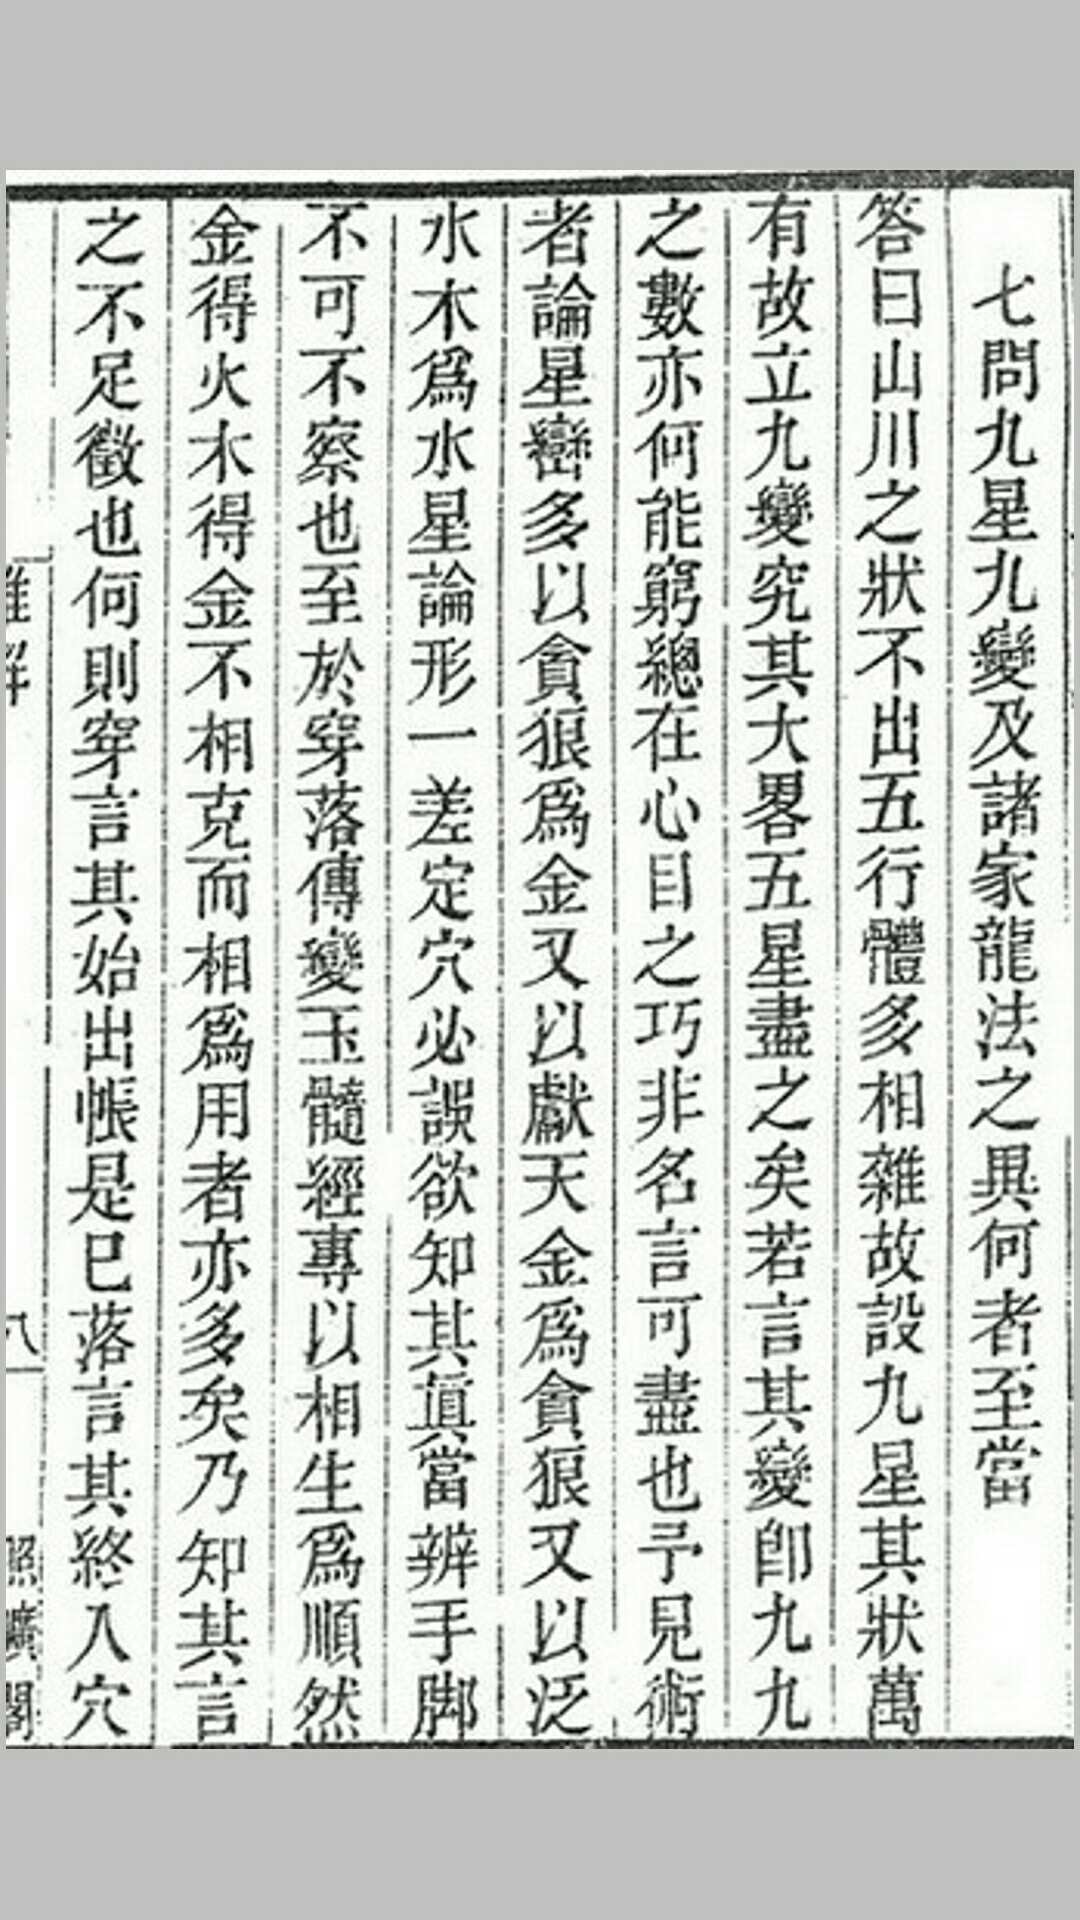 七問九星九變及諸家龍法之異何者至當
答曰山川之狀不出五行體多相雜故設九星其狀萬
有故立九變究其大畧五星盡之矣若言其變卽九九
之數亦何能窮總在心目之巧非名言可盡也予見術
者論星巒多以貪狼爲金又以獻天金爲貪狼又以泛
水木爲水星論形一差定穴必誤欲知其眞當辨手脚
不可不察也至於穿落傳變玉髓經專以相生爲順然
金得火木得金不相克而相爲用者亦多矣乃知其言
之不足徵也何則穿言其始出帳是巳落言其終入穴
八
照曠閣